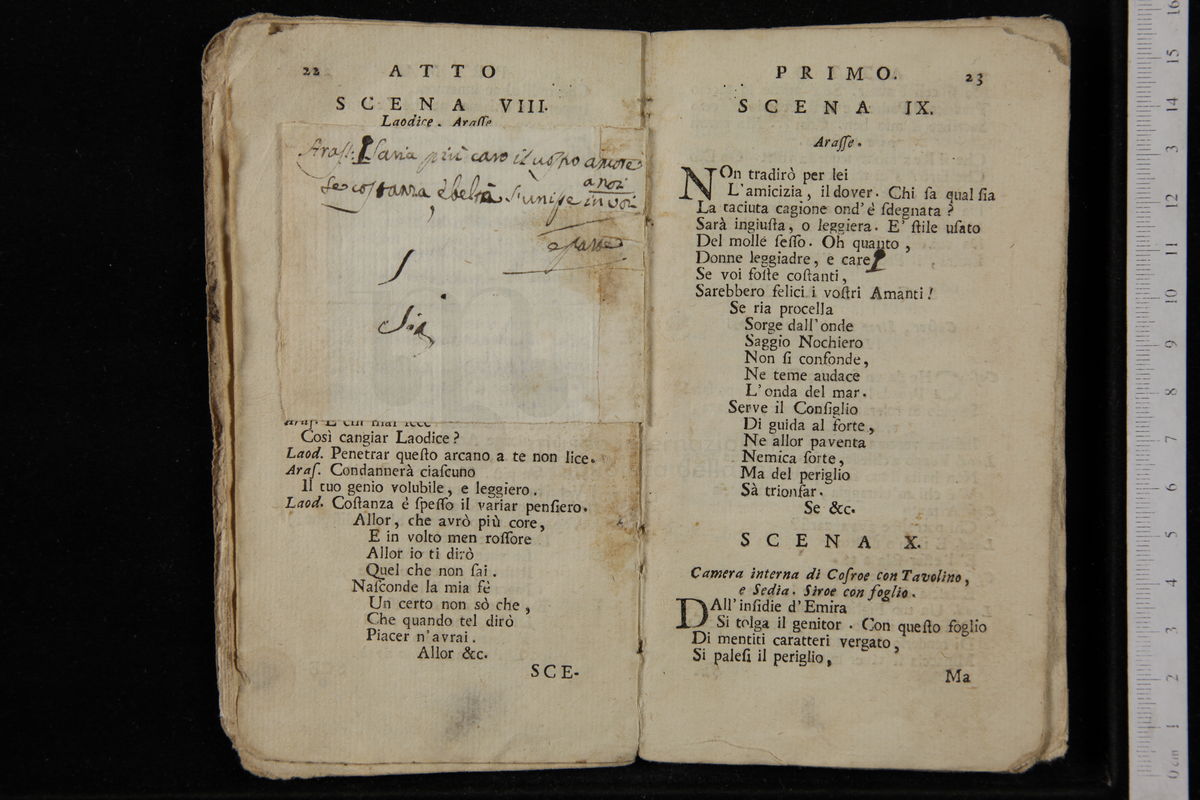 22 ATTO
SCENA VIII.
Laodice. Araſſe
Araſſ: Saria più caro il voſtro amore
Se coſtanza, e beltà s'uniſſe in voi
a noi
e parte
Sia
Araſ. E chi mai fece
Così cangiar Laodice?
Laod. Penetrar queſto arcano a te non lice.
Araſ. Condannerà ciaſcuno
Il tuo genio volubile, e leggiero.
Laod. Coſtanza é ſpeſſo il variar penſiero.
Allor, che avrò più core,
E in volto men roſſore
Allor io ti dirò
Quel che non ſai.
Naſconde la mia fè
Un certo non sò che,
Che quando tel dirò
Piacer n'avrai.
Allor &c.
SCE-
PRIMO. 23
SCENA IX.
Araſſe.
NOn tradirò per lei
L'amicizia, il dover. Chi ſa qual ſia
La taciuta cagione ond'è ſdegnata?
Sarà ingiuſta, o leggiera. E' ſtile uſato
Del molle ſeſſo. Oh quanto,
Donne leggiadre, e care
Se voi foſte coſtanti,
Sarebbero felici i voſtri Amanti!
Se ria procella
Sorge dall'onde
Saggio Nochiero
Non ſi confonde,
Ne teme audace
L'onda del mar.
Serve il Conſiglio
Di guida al forte,
Ne allor paventa
Nemica ſorte,
Ma del periglio
Sà trionfar.
Se &c.
SCENA X.
Camera interna di Coſroe con Tavolino,
e Sedia. Siroe con foglio.
DAll'inſidie d'Emira
Si tolga il genitor. Con queſto foglio
Di mentiti caratteri vergato,
Si paleſi il periglio,
Ma
16
15
14
3
12
11
10
9
8
7
6
5
4
3
2
1
0 cm